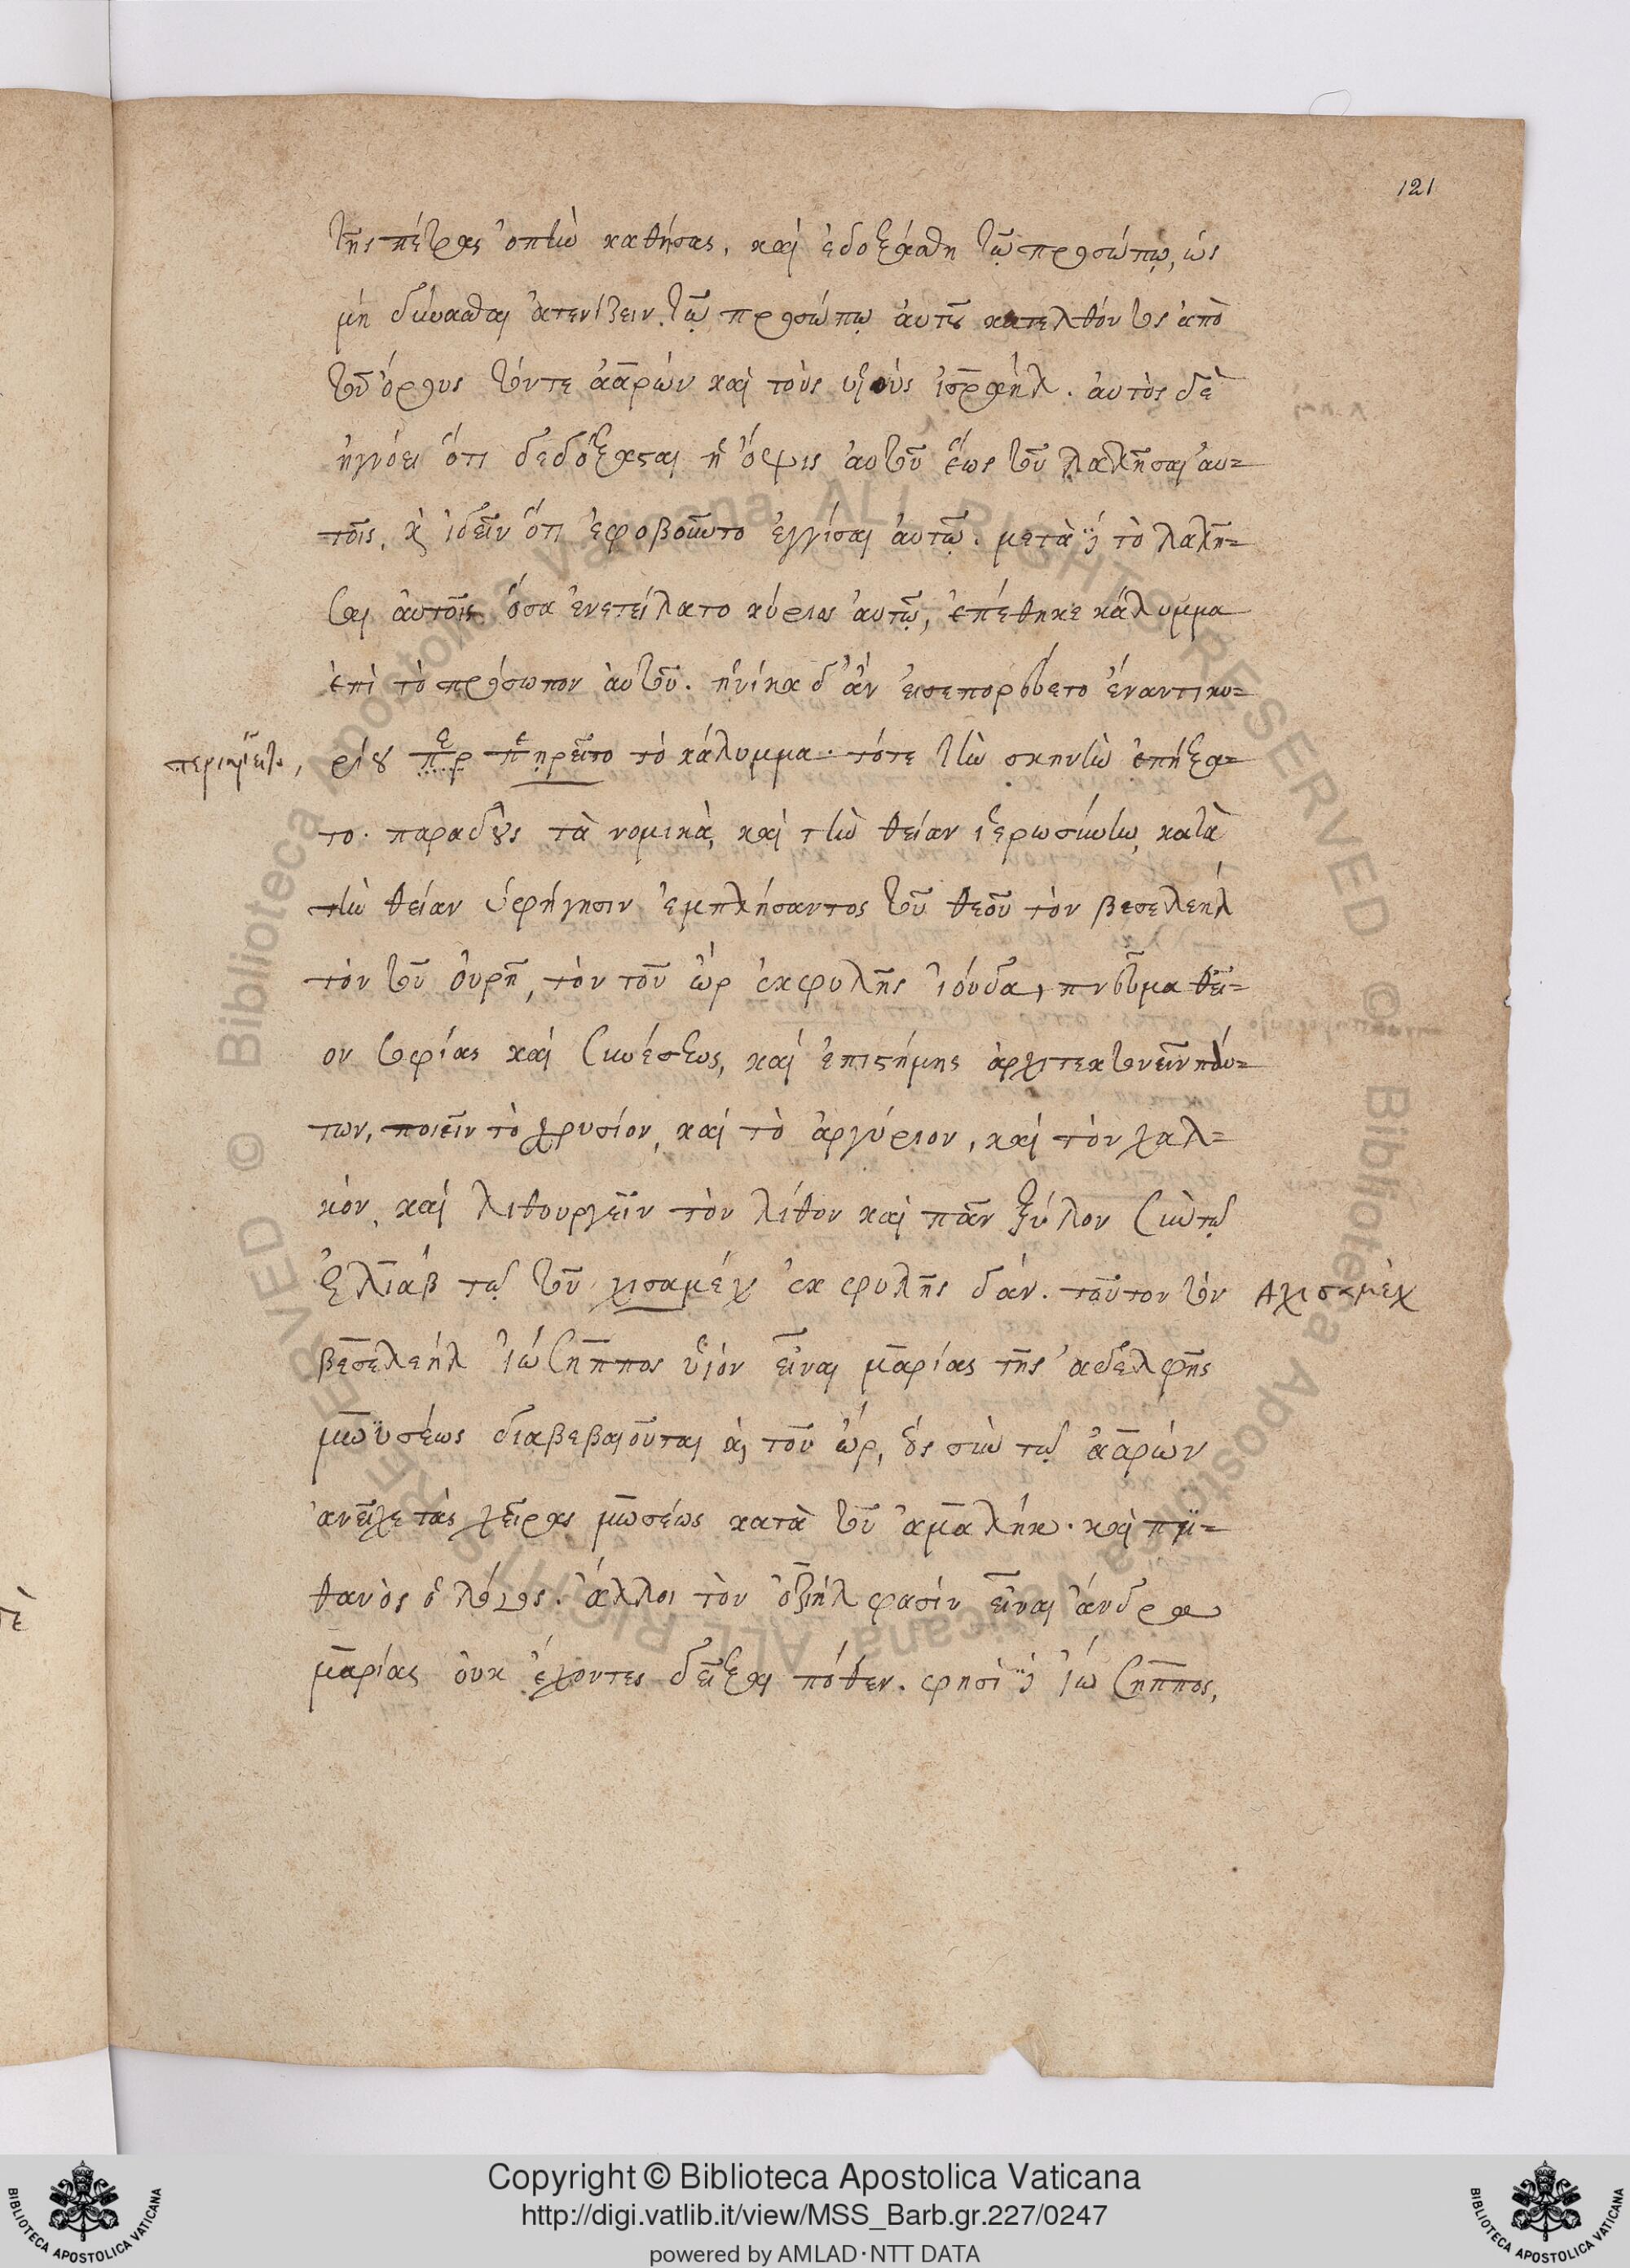 121
τῆς πέτρας ὀπὴν καθήσας, καὶ ἐδοξάσθη τῷ προσώπῳ, ὡς
μὴ δύνασθαι ἀτενίζειν τῷ προσώπῳ ἀυτοῦ κατελθόντος ἀπὸ
τοῦ ὄρους τόντε ἀαρών καὶ τοὺς υἱοὺς ἰσραήλ. ἀυτὸς δὲ
ἠγνόει ὅτι δεδόξασται ἡ ὄψις ἀυτοῦ ἕως τοῦ λαλῆσαι ἀυ-
τοῖς, κ̀ ἰδεῖν ὅτι ἐφοβοῦντο ἐγγίσαι ἀυτῷ. μετὰ δὲ τὸ λαλῆ-
σαι ἀυτοῖς ὅσα ἐνετείλατο κύριος ἀυτῷ, ἐπέθηκε κάλυμμα
ἐπὶ τὸ πρόσωπον ἀυτοῦ. ἡνίκα δ' ἂν εἰσεπορεύετο ἐναντι κυ-
περιῃρεῖτο, ρίου περ πεηρεῖτο τὸ κάλυμμα. τότε τὴν σκηνὴν ἐπήξα-
το. παραδοὺς τὰ νομικὰ, καὶ τὴν θείαν ἱερωσύνην, κατὰ
τὴν θείαν ὑφήγησιν ἐμπλήσαντος τοῦ θεοῦ τὸν βεσελεήλ
τὸν τοῦ ὀυρῆ, τὸν τοῦ ὢρ ἐκ φυλῆς ἰούδα, πνεῦμα θεῖ-
ον σοφίας καὶ συνέσεως, καὶ ἐπιστήμης ἀρχιτεκτονεῖν πάν-
των, ποιεῖν τὸ χρυσίον, καὶ τὸ ἀργύριον, καὶ τὸν χαλ-
κόν, καὶ λιθουργεῖν τὸν λίθον καὶ πᾶν ξύλον σὺν τῷ
ἐλιὰβ τῷ τοῦ χισαμέχ ἐκ φυλῆς δάν. τοῦτον τὸν Αχισαμέχ
βεσελεήλ ἰώσηππος υἱόν εἶναι μαρίας τῆς ἀδελφῆς
μωϋσέως διαβεβαιοῦται κ̀ τοῦ ὤρ, ὃς σὺν τῷ ἀαρών
ἀνεῖχε τὰς χεῖρας μωσέως κατὰ τοῦ ἀμαλήκ. καὶ πι-
θανὸς ὁ λόγος. ἄλλοι τὸν ὀζιήλ φασίν εἶναι ἄνδρα
μαρίας ὀυκ ἔχοντες δεῖξαι πόθεν. φησὶ δὲ ἰώσηππος,
Copyright © Biblioteca Apostolica Vaticana
http://digi.vatlib.it/view/MSS_Barb.gr.227/0247
powered by AMLAD·NTT DATA